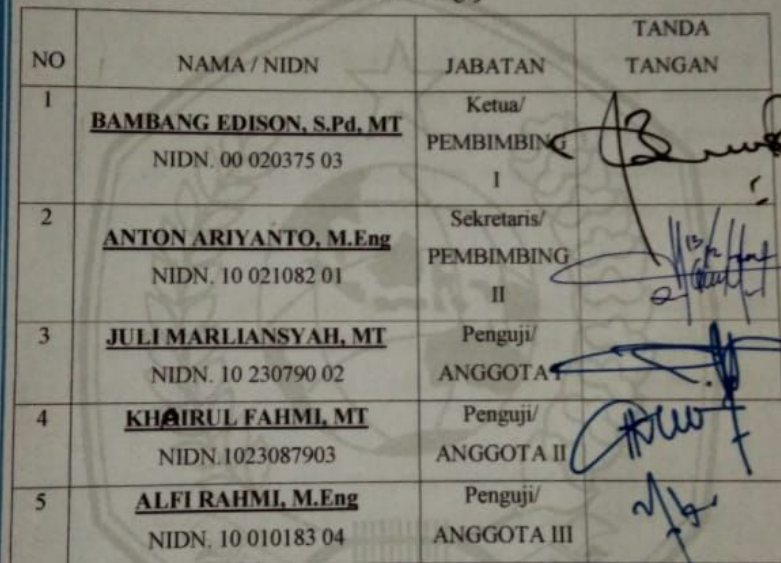 NO NAMA / NIDN JABATAN TANDA TANGAN
1 BAMBANG EDISON, S.Pd, MT
NIDN. 00 020375 03
Ketua/
PEMBIMBING
I
2 ANTON ARIYANTO, M.Eng
NIDN. 10 021082 01
Sekretaris/
PEMBIMBING
II
3 JULI MARLIANSYAH, MT
NIDN. 10 230790 02
Penguji/
ANGGOTA I
4 KHAIRUL FAHMI, MT
NIDN.1023087903
Penguji/
ANGGOTA II
5 ALFI RAHMI, M.Eng
NIDN. 10 010183 04
Penguji/
ANGGOTA III